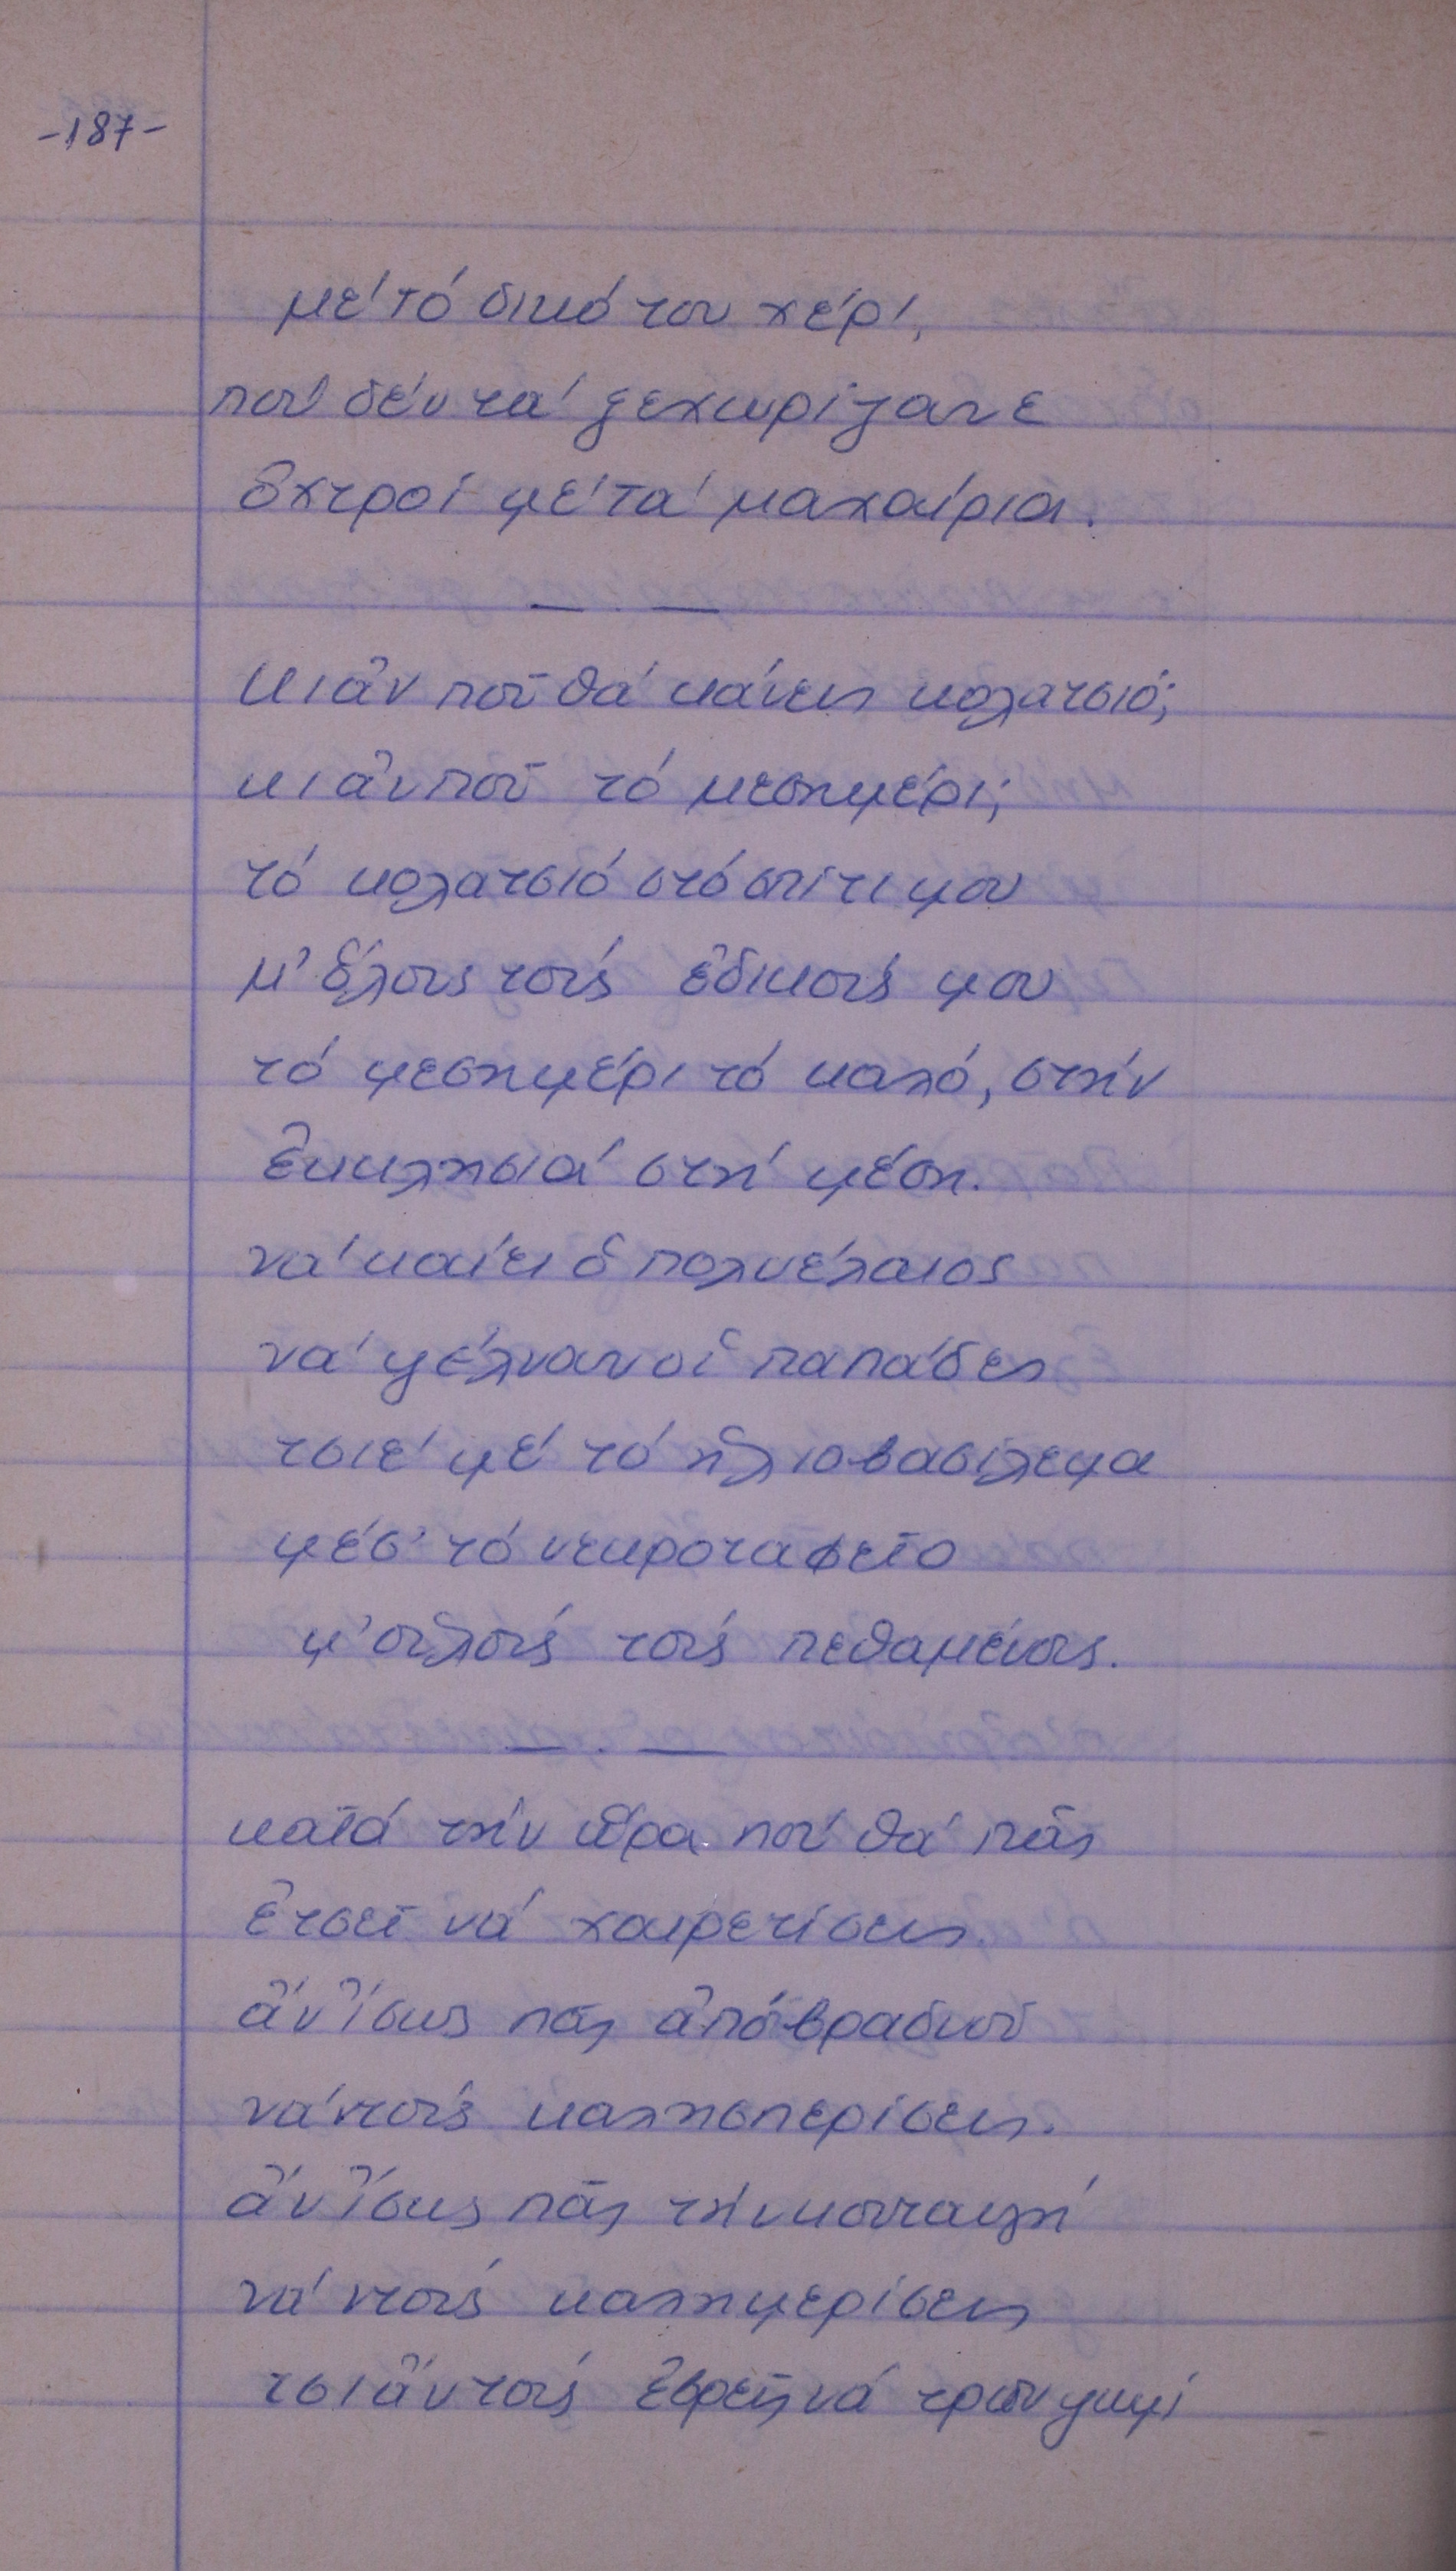 -187-
μέ τό δικό του χέρι,
πού δέν τά ξεχωρίζανε
ὀχτροί μέ τά μαχαίρια.
— . —
Κι ἀν ποῦ θά κάνεις κολατσιό;
κι ἀν ποῦ τό μεσημέρι;
τό κολατσιό στό σπίτι μου
μ' ὅλους τούς ἐδικούς μου
τό μεσημέρι τό καλό, στήν
ἐκκλησιά στή μέση.
νά καίει ὁ πολυέλαιος
νά ψέλναν οἱ παπάδες
τσιέ μέ τό ἡλιοβασίλεμα
μέσ' τό νεκροταφεῖο
μ' οὑλούς τούς πεθαμένους.
— . —
κατά τήν ὥρα πού θά πᾶς
ἐτσεῖ νά χαιρετίσεις.
ἄν ἴσως πᾶς ἀπόβραδυοῦ
νά ντούς καλησπερίσεις.
ἄν ἴσως πᾶς τήν κουταυγή
νά ντούς καλημερίσεις
τσι ἄν τούς ἐβρεῖς νά τρῶν ψωμί